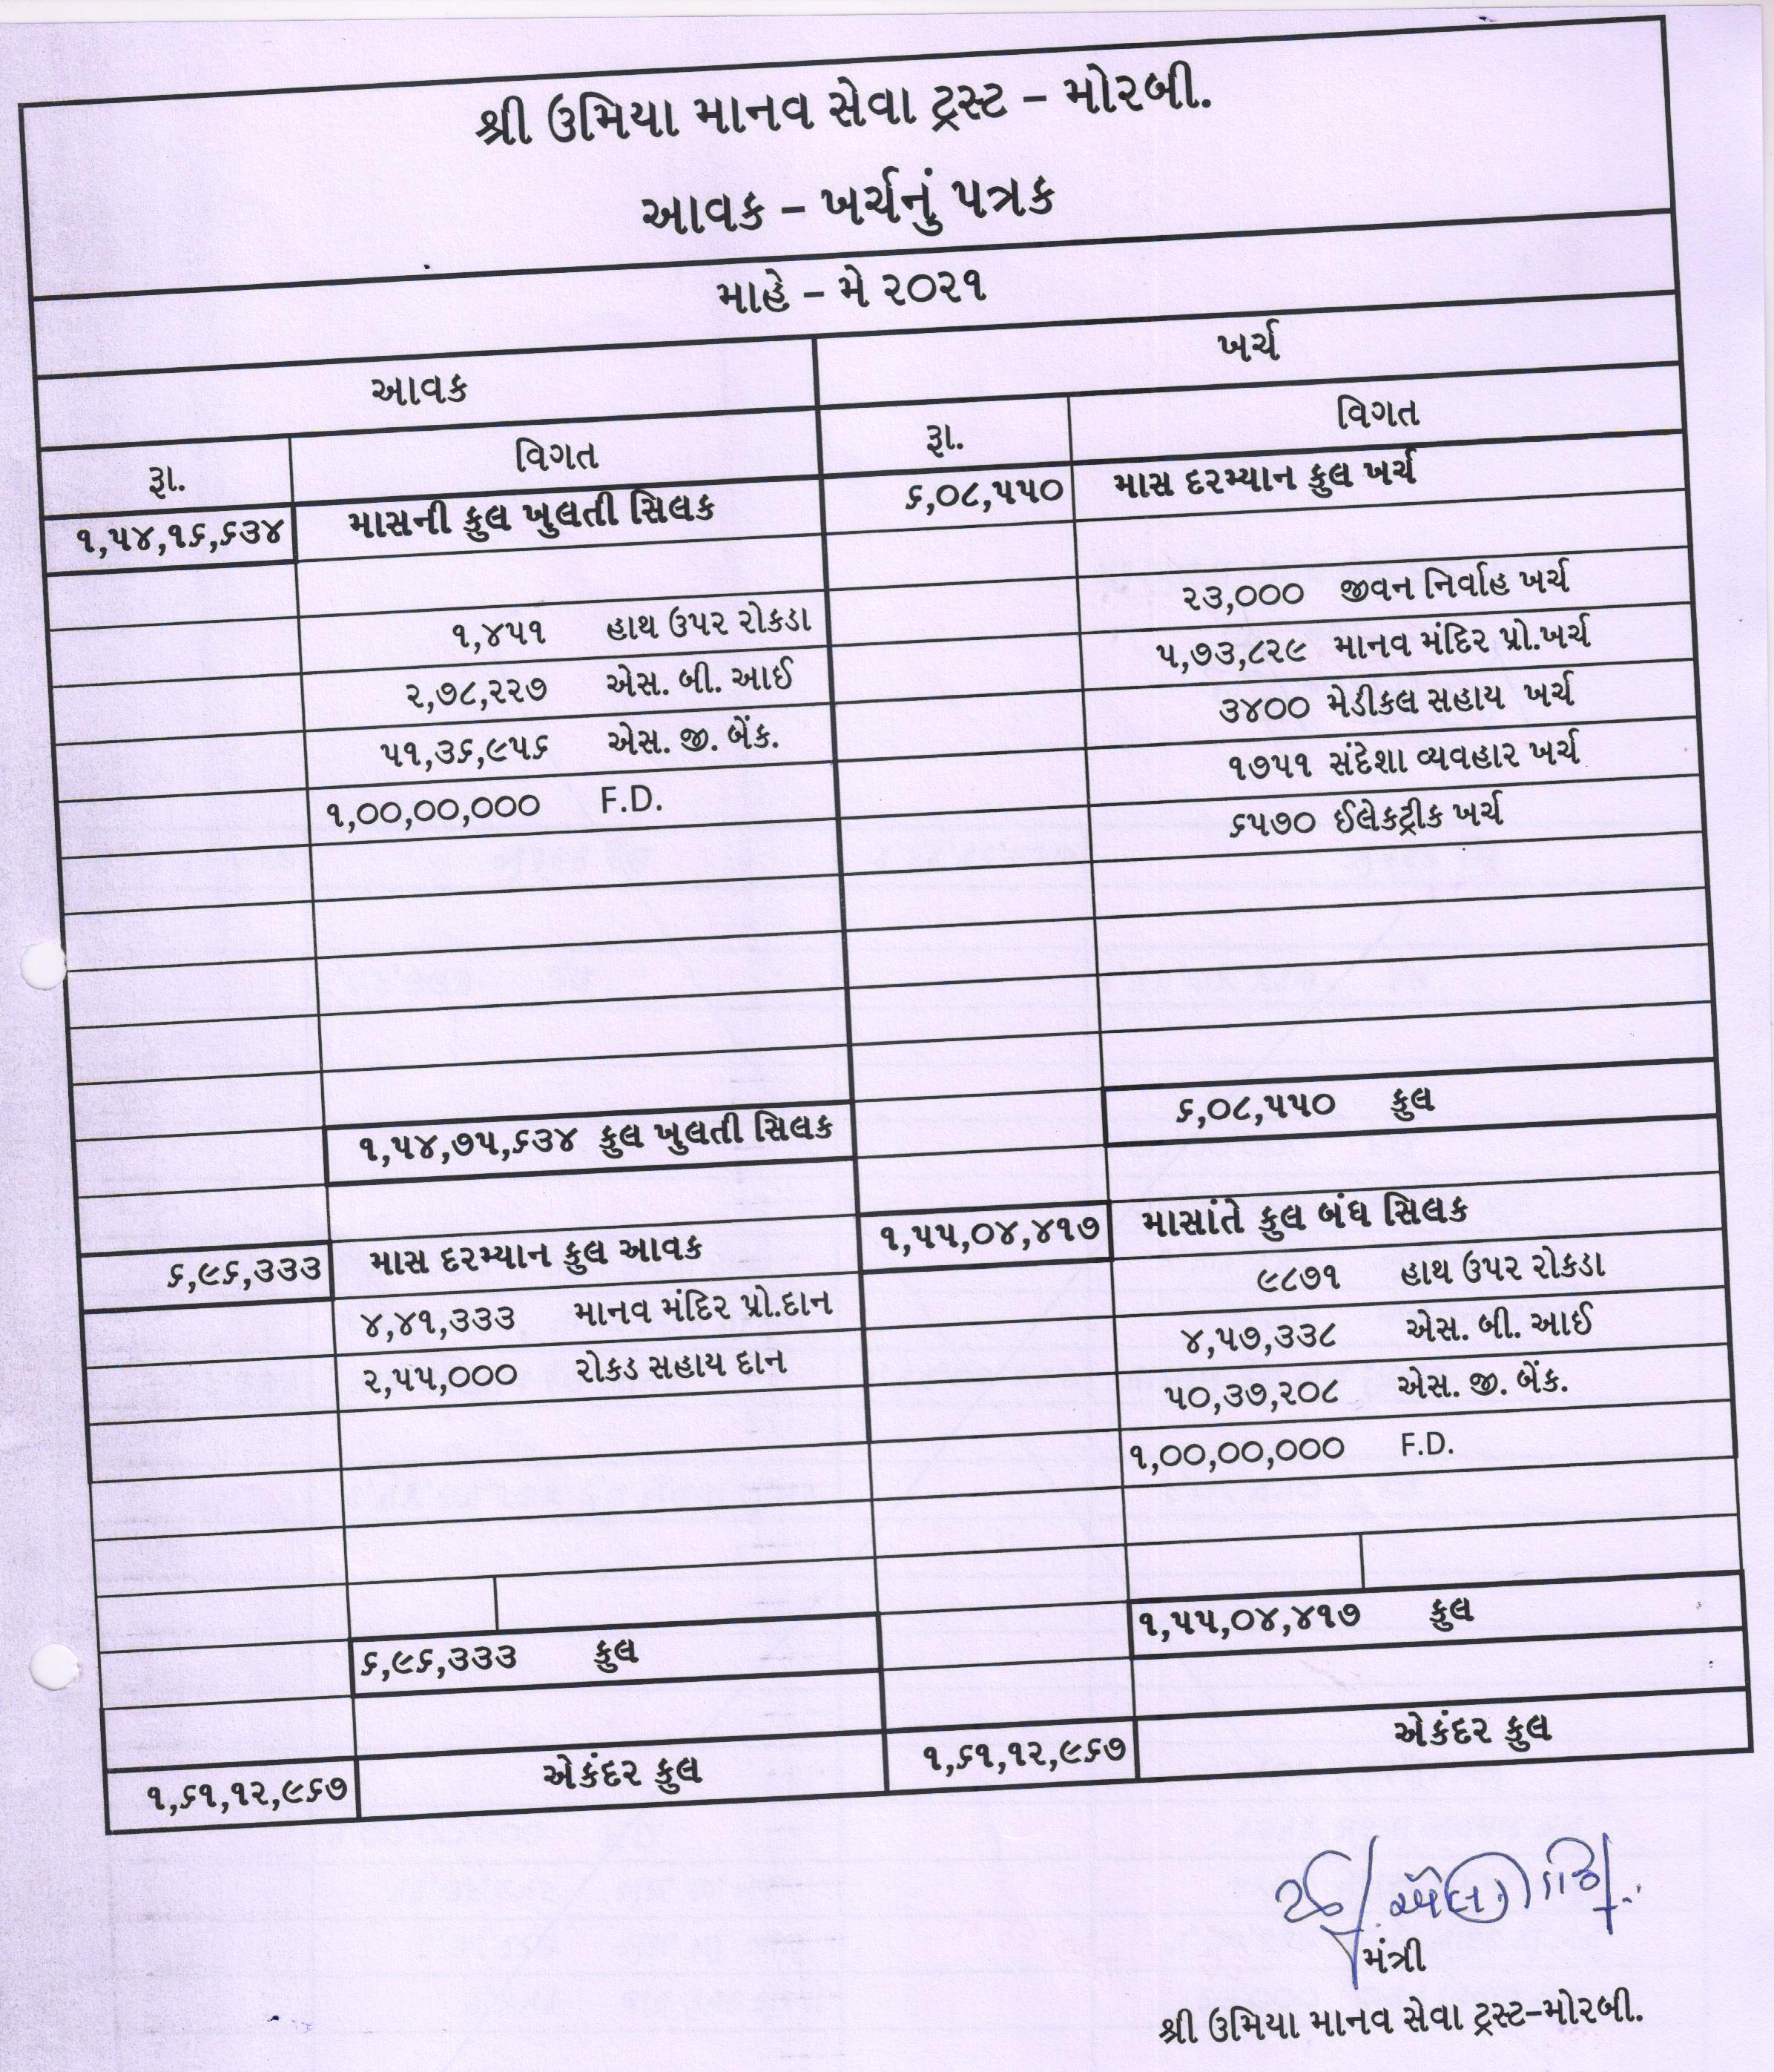 શ્રી ઉમિયા માનવ સેવા ટ્રસ્ટ – મોરબી.
આવક – ખર્ચનું પત્રક
માહે – મે ૨૦૨૧
આવક ખર્ચ
રૂા. વિગત રૂા. વિગત
૧,૫૪,૧૬,૬૩૪ માસની કુલ ખુલતી સિલક ૬,૦૮,૫૫૦ માસ દરમ્યાન કુલ ખર્ચ
૧,૪૫૧ હાથ ઉપર રોકડા ૨૩,૦૦૦ જીવન નિર્વાહ ખર્ચ
૨,૭૮,૨૨૭ એસ. બી. આઈ ૫,૭૩,૮૨૯ માનવ મંદિર પ્રો.ખર્ચ
૫૧,૩૬,૯૫૬ એસ. જી. બેંક. ૩૪૦૦ મેડીકલ સહાય ખર્ચ
૧,૦૦,૦૦,૦૦૦ F.D. ૧૭૫૧ સંદેશા વ્યવહાર ખર્ચ
૬૫૭૦ ઈલેકટ્રીક ખર્ચ
૧,૫૪,૭૫,૬૩૪ કુલ ખુલતી સિલક ૬,૦૮,૫૫૦ કુલ
૬,૯૬,૩૩૩ માસ દરમ્યાન કુલ આવક ૧,૫૫,૦૪,૪૧૭ માસાંતે કુલ બંધ સિલક
૪,૪૧,૩૩૩ માનવ મંદિર પ્રો.દાન ૯૮૭૧ હાથ ઉપર રોકડા
૨,૫૫,૦૦૦ રોકડ સહાય દાન ૪,૫૭,૩૩૮ એસ. બી. આઈ
૫૦,૩૭,૨૦૮ એસ. જી. બેંક.
૧,૦૦,૦૦,૦૦૦ F.D.
૬,૯૬,૩૩૩ કુલ ૧,૫૫,૦૪,૪૧૭ કુલ
૧,૬૧,૧૨,૯૬૭ એકંદર કુલ ૧,૬૧,૧૨,૯૬૭ એકંદર કુલ
મંત્રી
શ્રી ઉમિયા માનવ સેવા ટ્રસ્ટ–મોરબી.